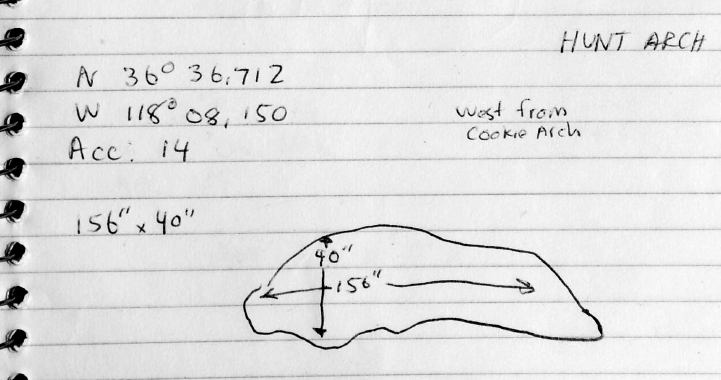 HUNT ARCH
N 36° 36.712
W 118° 08.150
Acc: 14
West from
Cookie Arch
156" x 40"
40"
156"